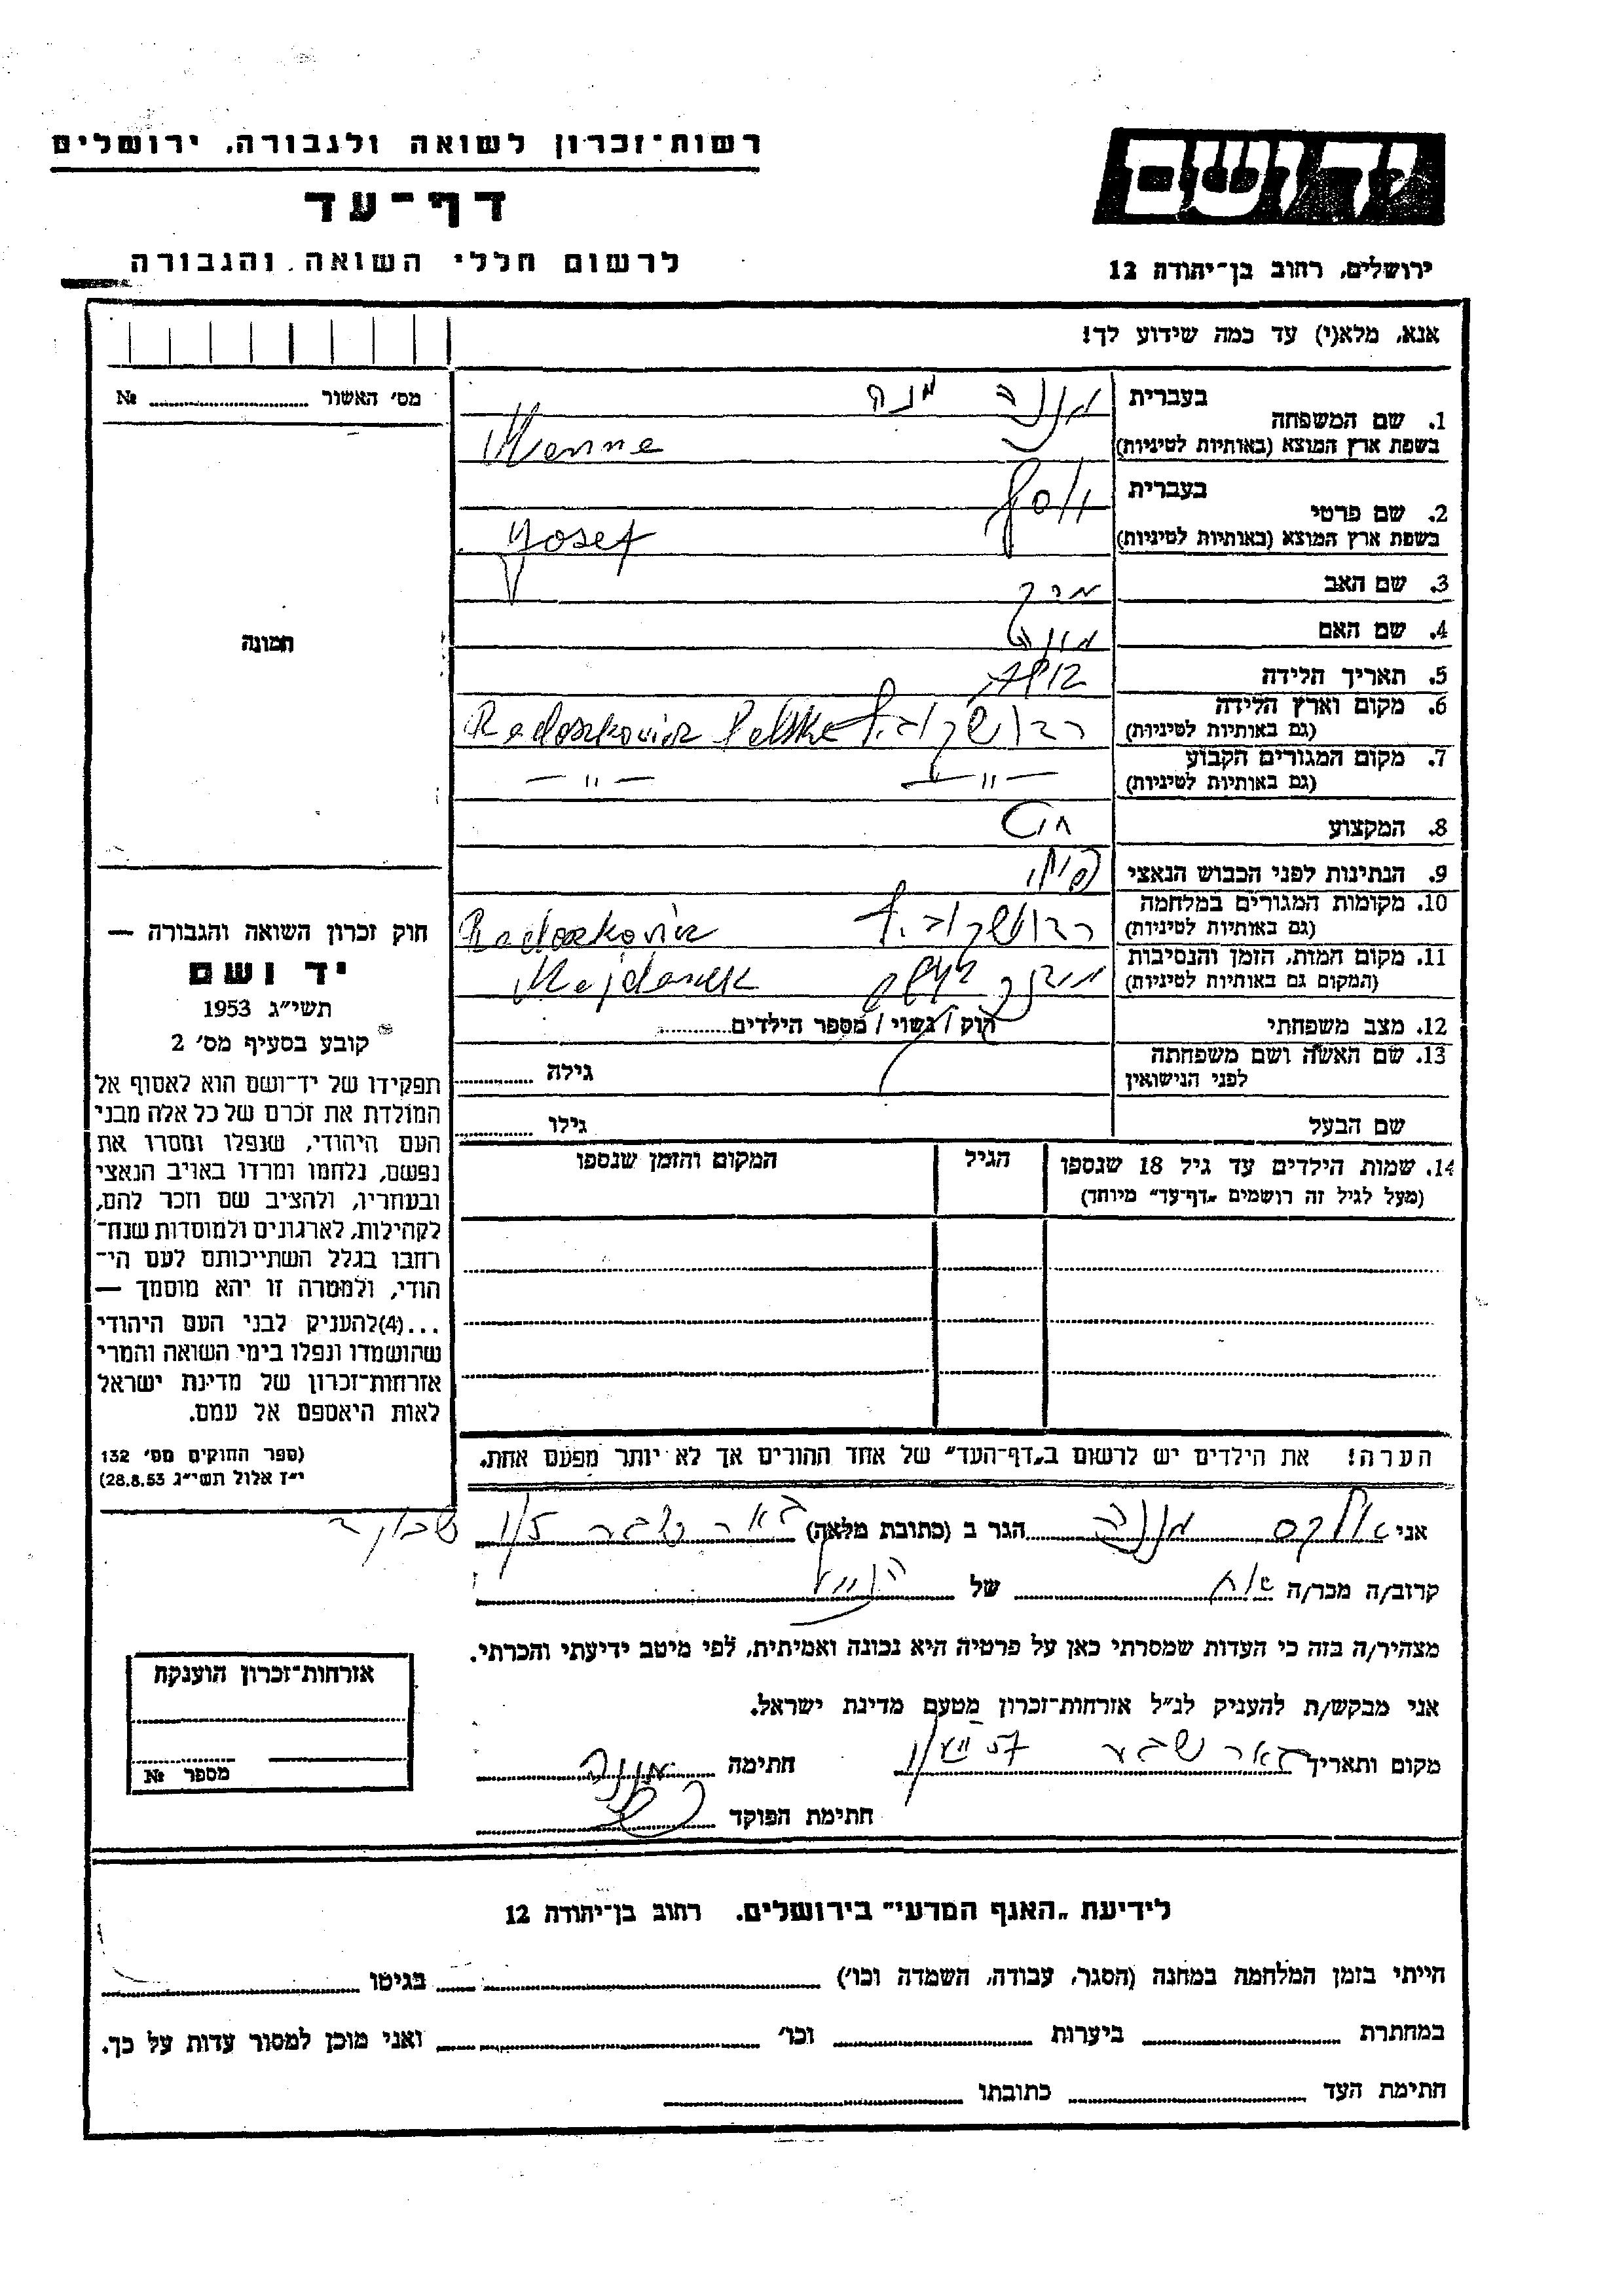 רשות־זכרון לשואה ולגבורה, ירושלים
דף־עד
לרשום חללי השואה והגבורה
יד ושם
ירושלים, רחוב בן־יהודה 12
אנא, מלא(י) עד כמה שידוע לך!
מס׳ האשור № 
תמונה
חוק זכרון השואה והגבורה —
יד ושם
תשי״ג 1953
קובע בסעיף מס׳ 2
תפקידו של יד־ושם הוא לאסוף אל
המולדת את זכרם של כל אלה מבני
העם היהודי, שנפלו ומסרו את
נפשם, נלחמו ומרדו באויב הנאצי
ובעוזריו, ולהציב שם וזכר להם,
לקהילות, לארגונים ולמוסדות שנח־
רחבו בגלל השתייכותם לעם הי־
הודי, ולמטרה זו יהא מוסמך —
...(4)להעניק לבני העם היהודי
שהושמדו ונפלו בימי השואה והמרי
אזרחות־זכרון של מדינת ישראל
לאות היאספם אל עמם.
(ספר החוקים מס׳ 132
י״ז אלול תשי״ג 28.8.53)
1. שם המשפחה בעברית מנה
בשפת ארץ המוצא (באותיות לטיניות) Menne
2. שם פרטי בעברית יוסף
בשפת ארץ המוצא (באותיות לטיניות) Yosef
3. שם האב
4. שם האם
5. תאריך הלידה
6. מקום וארץ הלידה
(גם באותיות לטיניות) Radoszkovicz Polska
7. מקום המגורים הקבוע
(גם באותיות לטיניות) — " — — " —
8. המקצוע
9. הנתינות לפני הכבוש הנאצי
10. מקומות המגורים במלחמה
(גם באותיות לטיניות) Radoszkovicz
11. מקום המות, הזמן והנסיבות
(המקום גם באותיות לטיניות) Majdanek
12. מצב משפחתי רוק / נשוי / מספר הילדים
13. שם האשה ושם משפחתה
לפני הנישואין גילה
שם הבעל גילו
14. שמות הילדים עד גיל 18 שנספו הגיל המקום והזמן שנספו
(מעל לגיל זה רושמים „דף־עד״ מיוחד)
הערה! את הילדים יש לרשום ב„דף־העד״ של אחד ההורים אך לא יותר מפעם אחת.
אני מנה הגר ב (כתובת מלאה) באר שבע
קרוב/ה מכר/ה אח של
מצהיר/ה בזה כי העדות שמסרתי כאן על פרטיה היא נכונה ואמיתית, לפי מיטב ידיעתי והכרתי.
אני מבקש/ת להעניק לנ״ל אזרחות־זכרון מטעם מדינת ישראל.
מקום ותאריך באר שבע חתימה מנה
חתימת הפוקד
אזרחות־זכרון הוענקה
מספר №
לידיעת „האגף המדעי״ בירושלים. רחוב בן־יהודה 12
הייתי בזמן המלחמה במחנה (הסגר, עבודה, השמדה וכו׳) בגיטו
במחתרת ביערות וכו׳ ואני מוכן למסור עדות על כך.
חתימת העד כתובתו